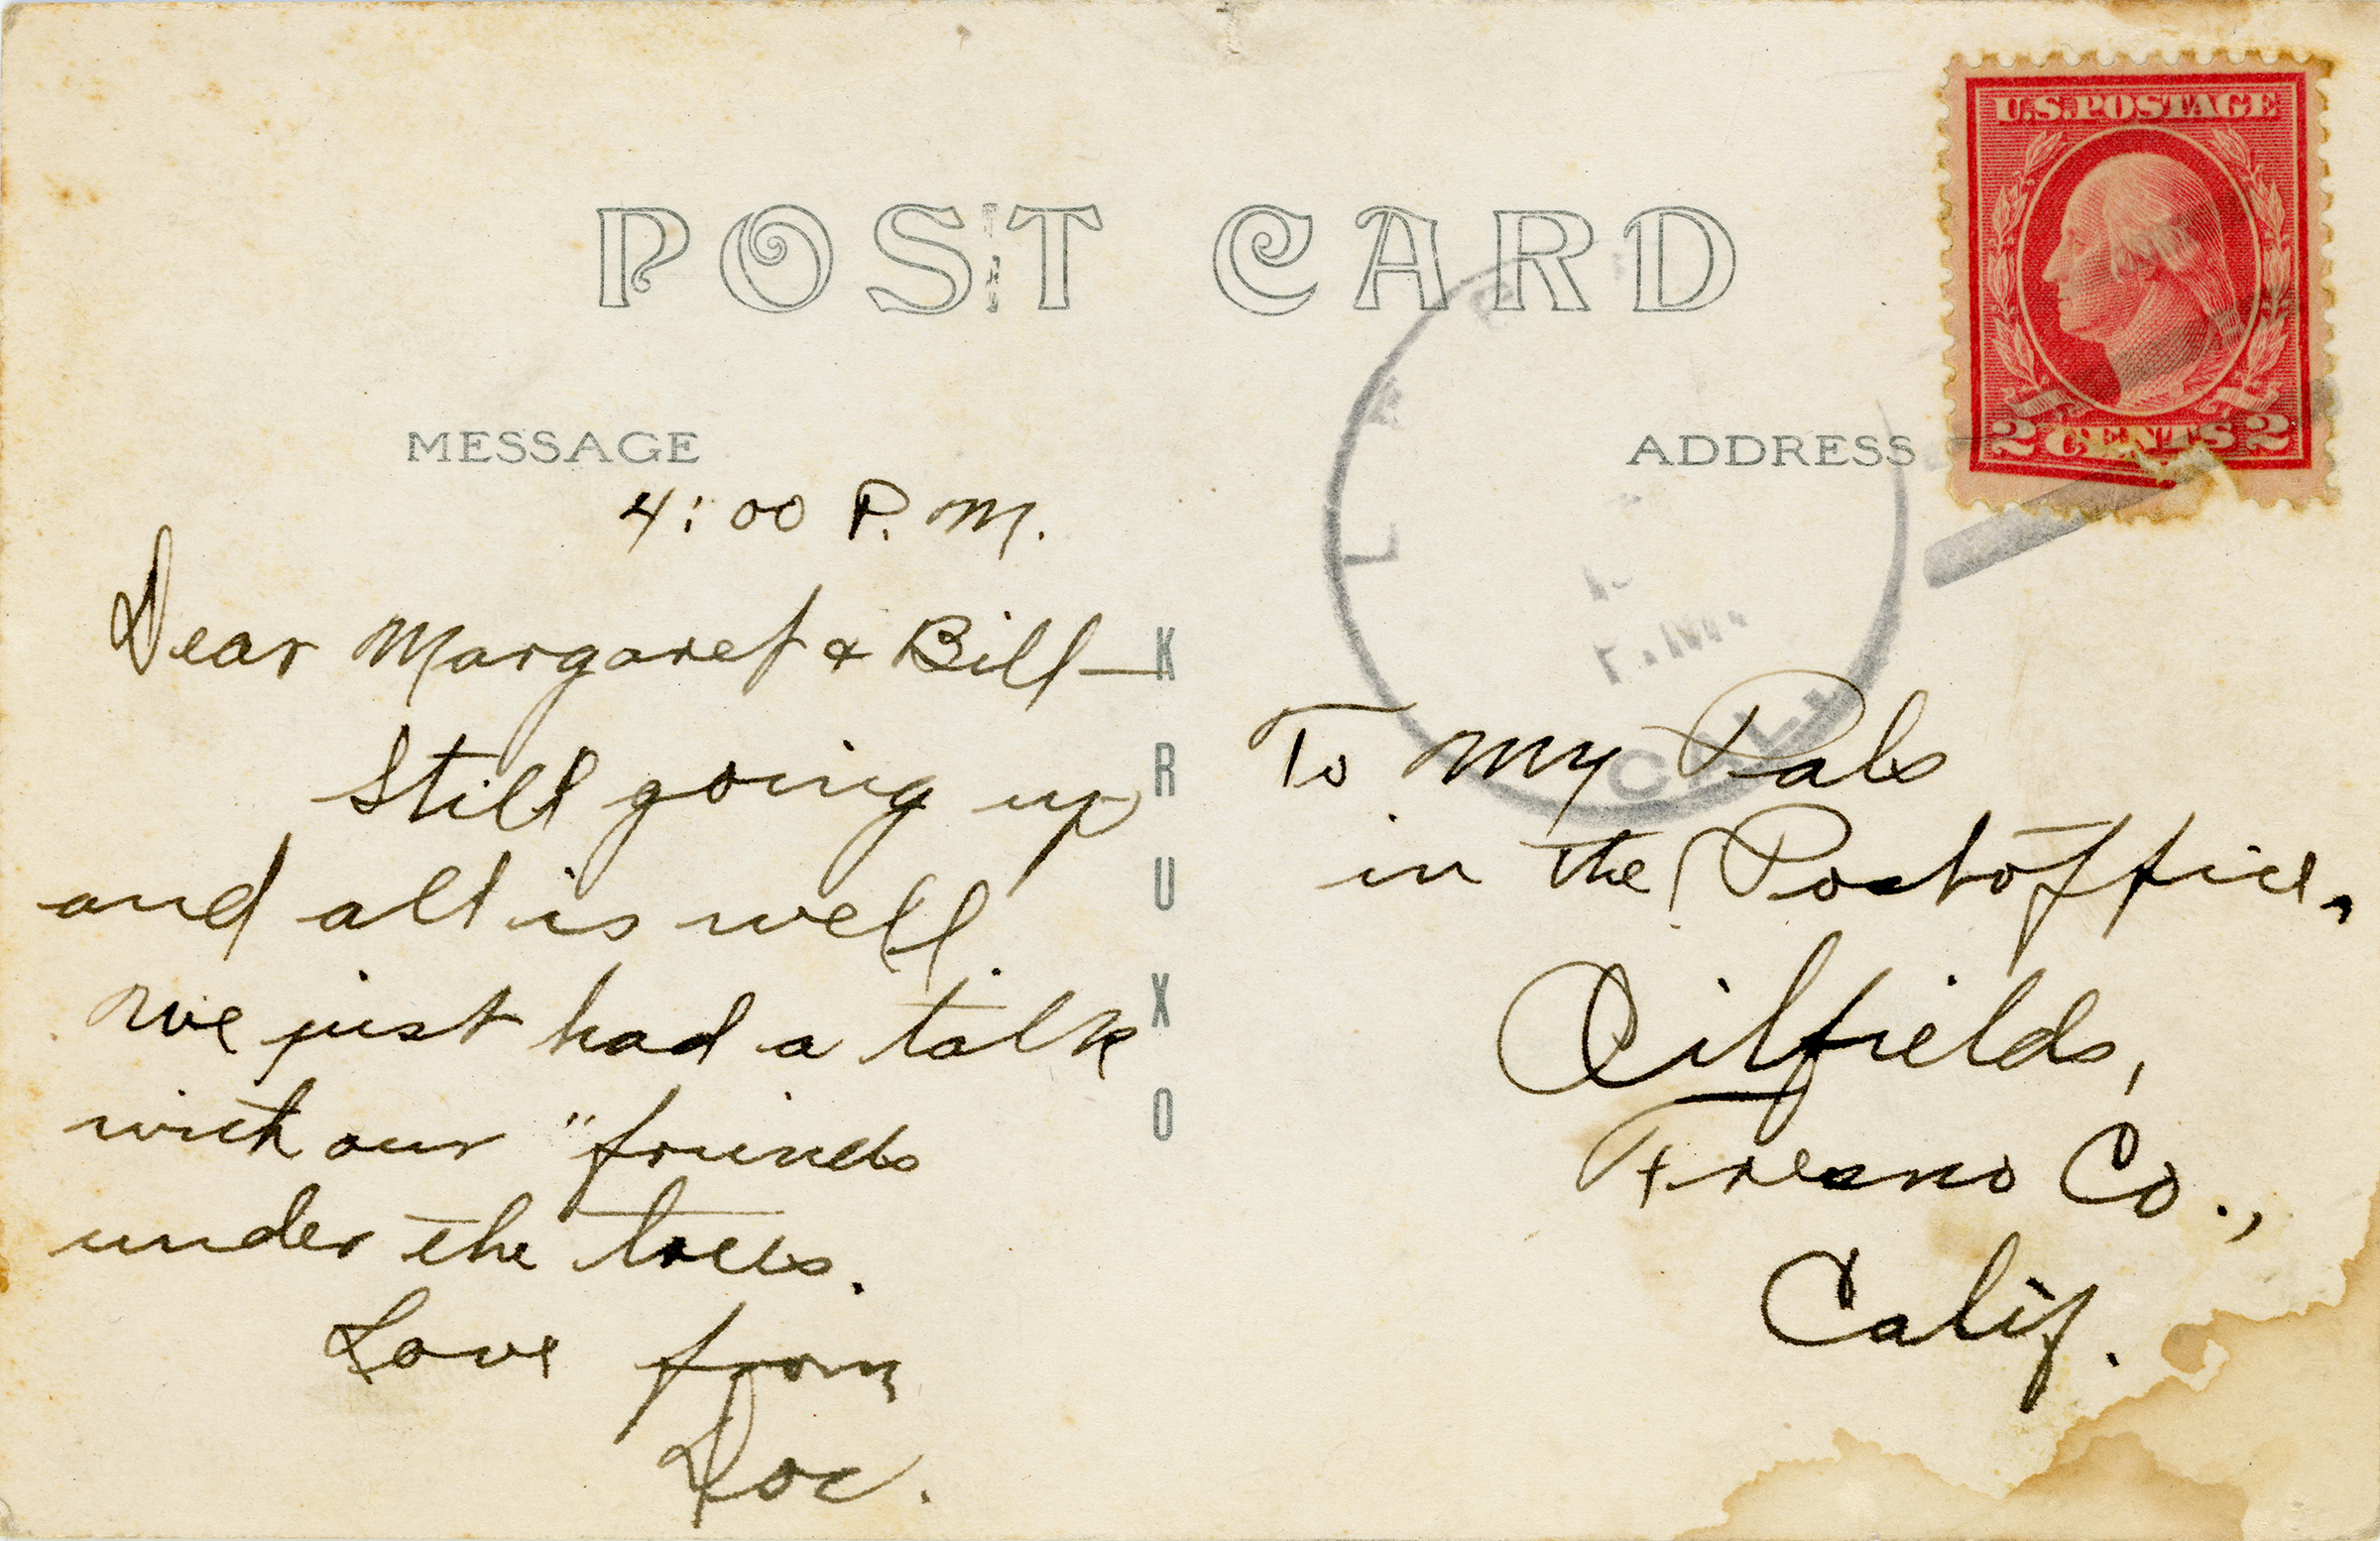 POST CARD
MESSAGE
4:00 P.M.
Dear Margaret & Bill—
Still going up
and all is well.
We just had a talk
with our "friends
under the trees.
Love from
Doc.
KRUXO
ADDRESS
U.S. POSTAGE
2 CENTS 2
CAL
To My Pals
in the Postoffice,
Oilfields,
Fresno Co.,
Calif.